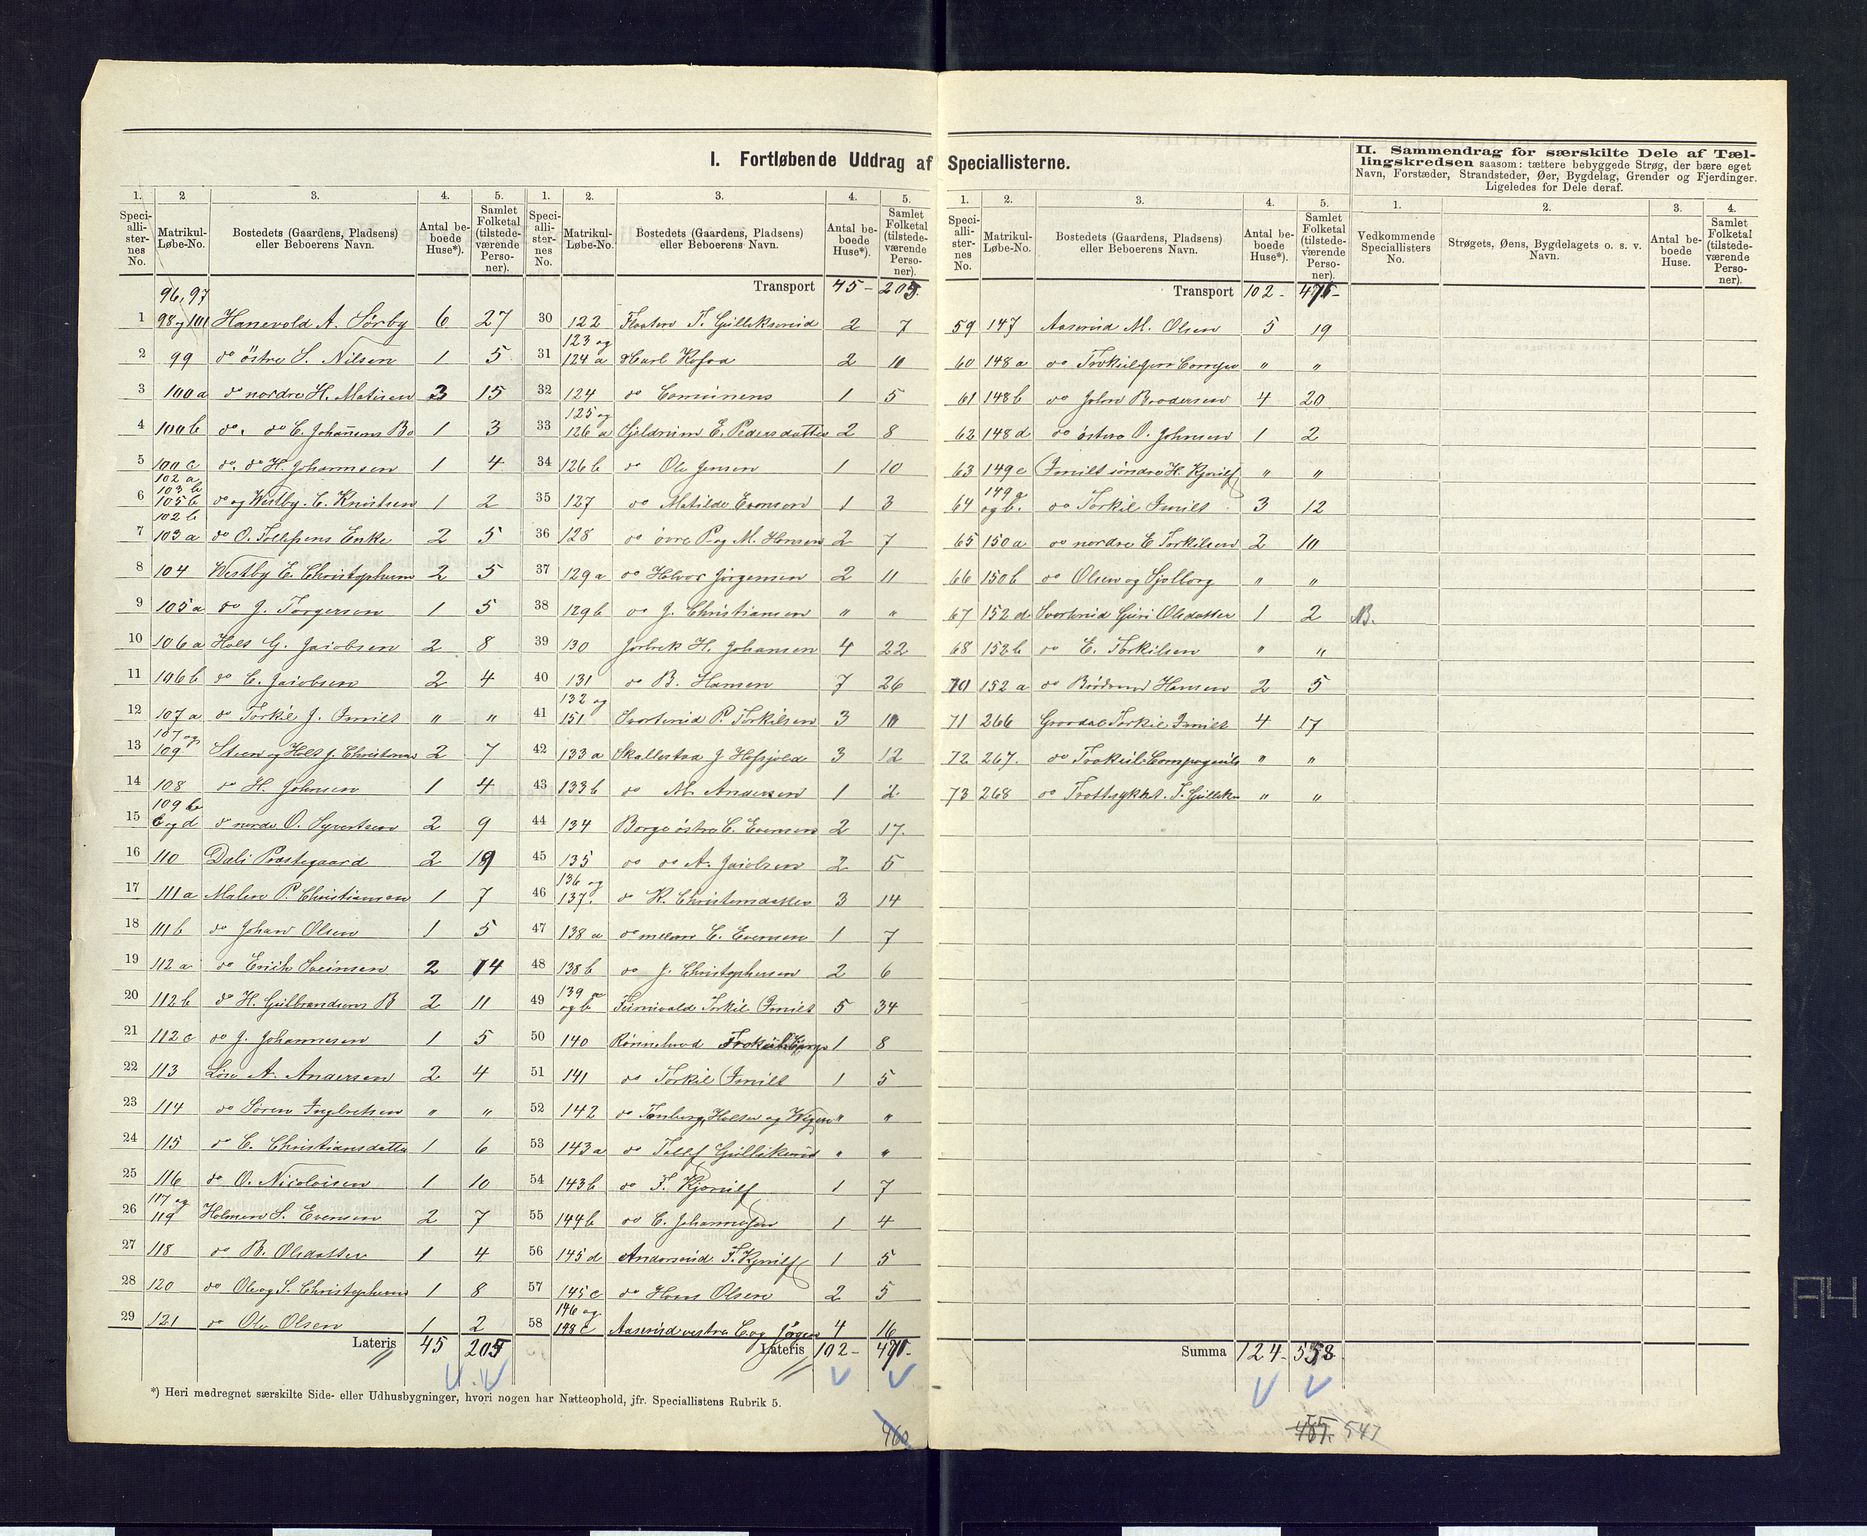 I. Fortløbende Uddrag af Speciallisterne.
II. Sammendrag for særskilte Dele af Tællingskredsen saasom: tættere bebyggede Strøg, der bære eget
Navn, Forstæder, Strandsteder, Øer, Bygdelag, Grender og Fjerdinger.
Ligeledes for Dele deraf.
1. 2 3. 4. 5.
Speciallisternes No. Matrikul-Løbe-No. Bostedets (Gaardens, Pladsens) eller Beboerens Navn. Antal beboede Huse*). Samlet Folketal (tilstedeværende Personer).
96, 97
1 98 og 101 Hanevold A. Sørby 6 27
2 99 do östre S. Nilsen 1 5
3 100a do nordre H. Matisen 3 15
4 100b do. do C. Johannens Bo 1 3
5 100c do. do H. Johannsen 1 4
102 a
103 b
6 105b do og Westby. C. Knutsen 1 2
102 b
7 103a do O. Tollefsens Enke 2 5
8 104 Westby E. Christophersen 2 5
9 105a do J. Torgersen 1 5
10 106a Hols G. Jacobsen 2 8
11 106b do C. Jacobsen 2 4
12 107a do Torkil J. Smilt " "
107 og
13 109 Steen og Hols J. Christens 2 7
14 108 do H. Johnsen 1 4
109 b
15 c og d do nordre O. Syvertsen 2 9
16 110 Dali Præstegaard 2 19
17 111a Malen P. Christiansen 1 7
18 111b do Johan Olsen 1 5
19 112a do Erich Sveinsen 2 14
20 112b do H. Gulbrandsens B 2 11
21 112c do J. Johannesen 1 5
22 113 Løse A. Andersen 2 4
23 114 do Søren Ingebretsen " "
24 115 do C. Christiansdatter 1 6
25 116 do O. Nicolaisen 1 10
117 og
26 119 Holmen S. Evensen 2 7
27 118 do B. Olsdatter 1 4
28 120 do Ole og S. Christophersen 1 8
29 121 do Ole Olsen 1 2
Lateris 45 205
*) Heri medregnet særskilte Side- eller Udhusbygninger, hvori nogen har Natteophold, jfr. Speciallistens Rubrik 5.
1. 2. 3. 4. 5.
Speciallisternes No. Matrikul-Løbe-No. Bostedets (Gaardens, Pladsens) eller Beboerens Navn. Antal beboede Huse*). Samlet Folketal (tilstedeværende Personer).
Transport 45- 205.
30 122 Flaaten T. Gulliksrud 2 7
123 og
31 124 a Karl Kofoa 2 10
32 124 do Comunens 1 5
125 og
33 126 a Gjeldrum E. Pedersdatter 2 8
34 126b do Ole Jensen 1 10
35 127 do Matilde Evensen 1 3
36 128 do övre P. og M. Hansen 2 7
37 129a do Halvor Jørgensen 2 11
38 129b do J. Christiansen " "
39 130 Jorbrek H. Johansen 4 22
40 131 do B. Hansen 7 26
132 og
41 151 Svarterud P. Torkilsen 3 10
42 133a Skallestad J Hofsjold 3 12
43 133b do M. Andersen 1 2
44 134 Borge östre C. Evensen 2 17.
45 135 do do A. Jacobsen 2 5
136 og
46 137. do K. Christensdatter 3 14
47 138 a do C. Evensen 1 7
48 138b do J. Christophersen 2 6
139 a
49 og b Torkil Smilt 5 34
50 140 Rønnelrod 1 8
51 141 do Torkil Smilt 1 5
52 142 do Tønberg, Holsen og " "
53 143a do Tollef Gulliksrud " "
54 143b do T. Kjønilf 1 7
55 144b do C. Johannesen 1 4
56 145d Andersrud T. Kjønilf 1 5
57 145c do Hans Olsen 2 5
146 og
58 148 c Aaserud vestre C. og Jörgen 4 16
Lateris 102- 471-
460
1. 2. 3. 4. 5.
Speciallisternes No. Matrikul-Løbe-No. Bostedets (Gaardens, Pladsens) eller Beboerens Navn. Antal beboede Huse*). Samlet Folketal (tilstedeværende Personer).
Transport 102- 471-
59 147 Aaserud M. Olsen 5 19
60 148a do " "
61 148b do John Brodersen 4 20
62 148d do østre O. Johnsen 1 2
63 149c Smilt søndre H. Kjønilf " "
149 a
64 og b. do Torkil Smilt 3 12
65 150a do nordre E Torkilsen 2 10
66 150b do Olsen og " "
67 152d Svarterud Guri Olsdatter 1 2 NB.
68 152b do E. Torkilsen " "
70 152a do Hansen 2 5
71 266 Grordal Torkil Smilt 4 17
72 267. do " "
73 268 do T. Gulliks " "
Summa 124- 558
457. 547
1. 2. 3. 4.
Vedkommende Speciallisters No. Strøgets, Øens, Bygdelagets o. s. v. Navn. Antal beboede Huse. Samlet Folketal (tilstedeværende Personer).